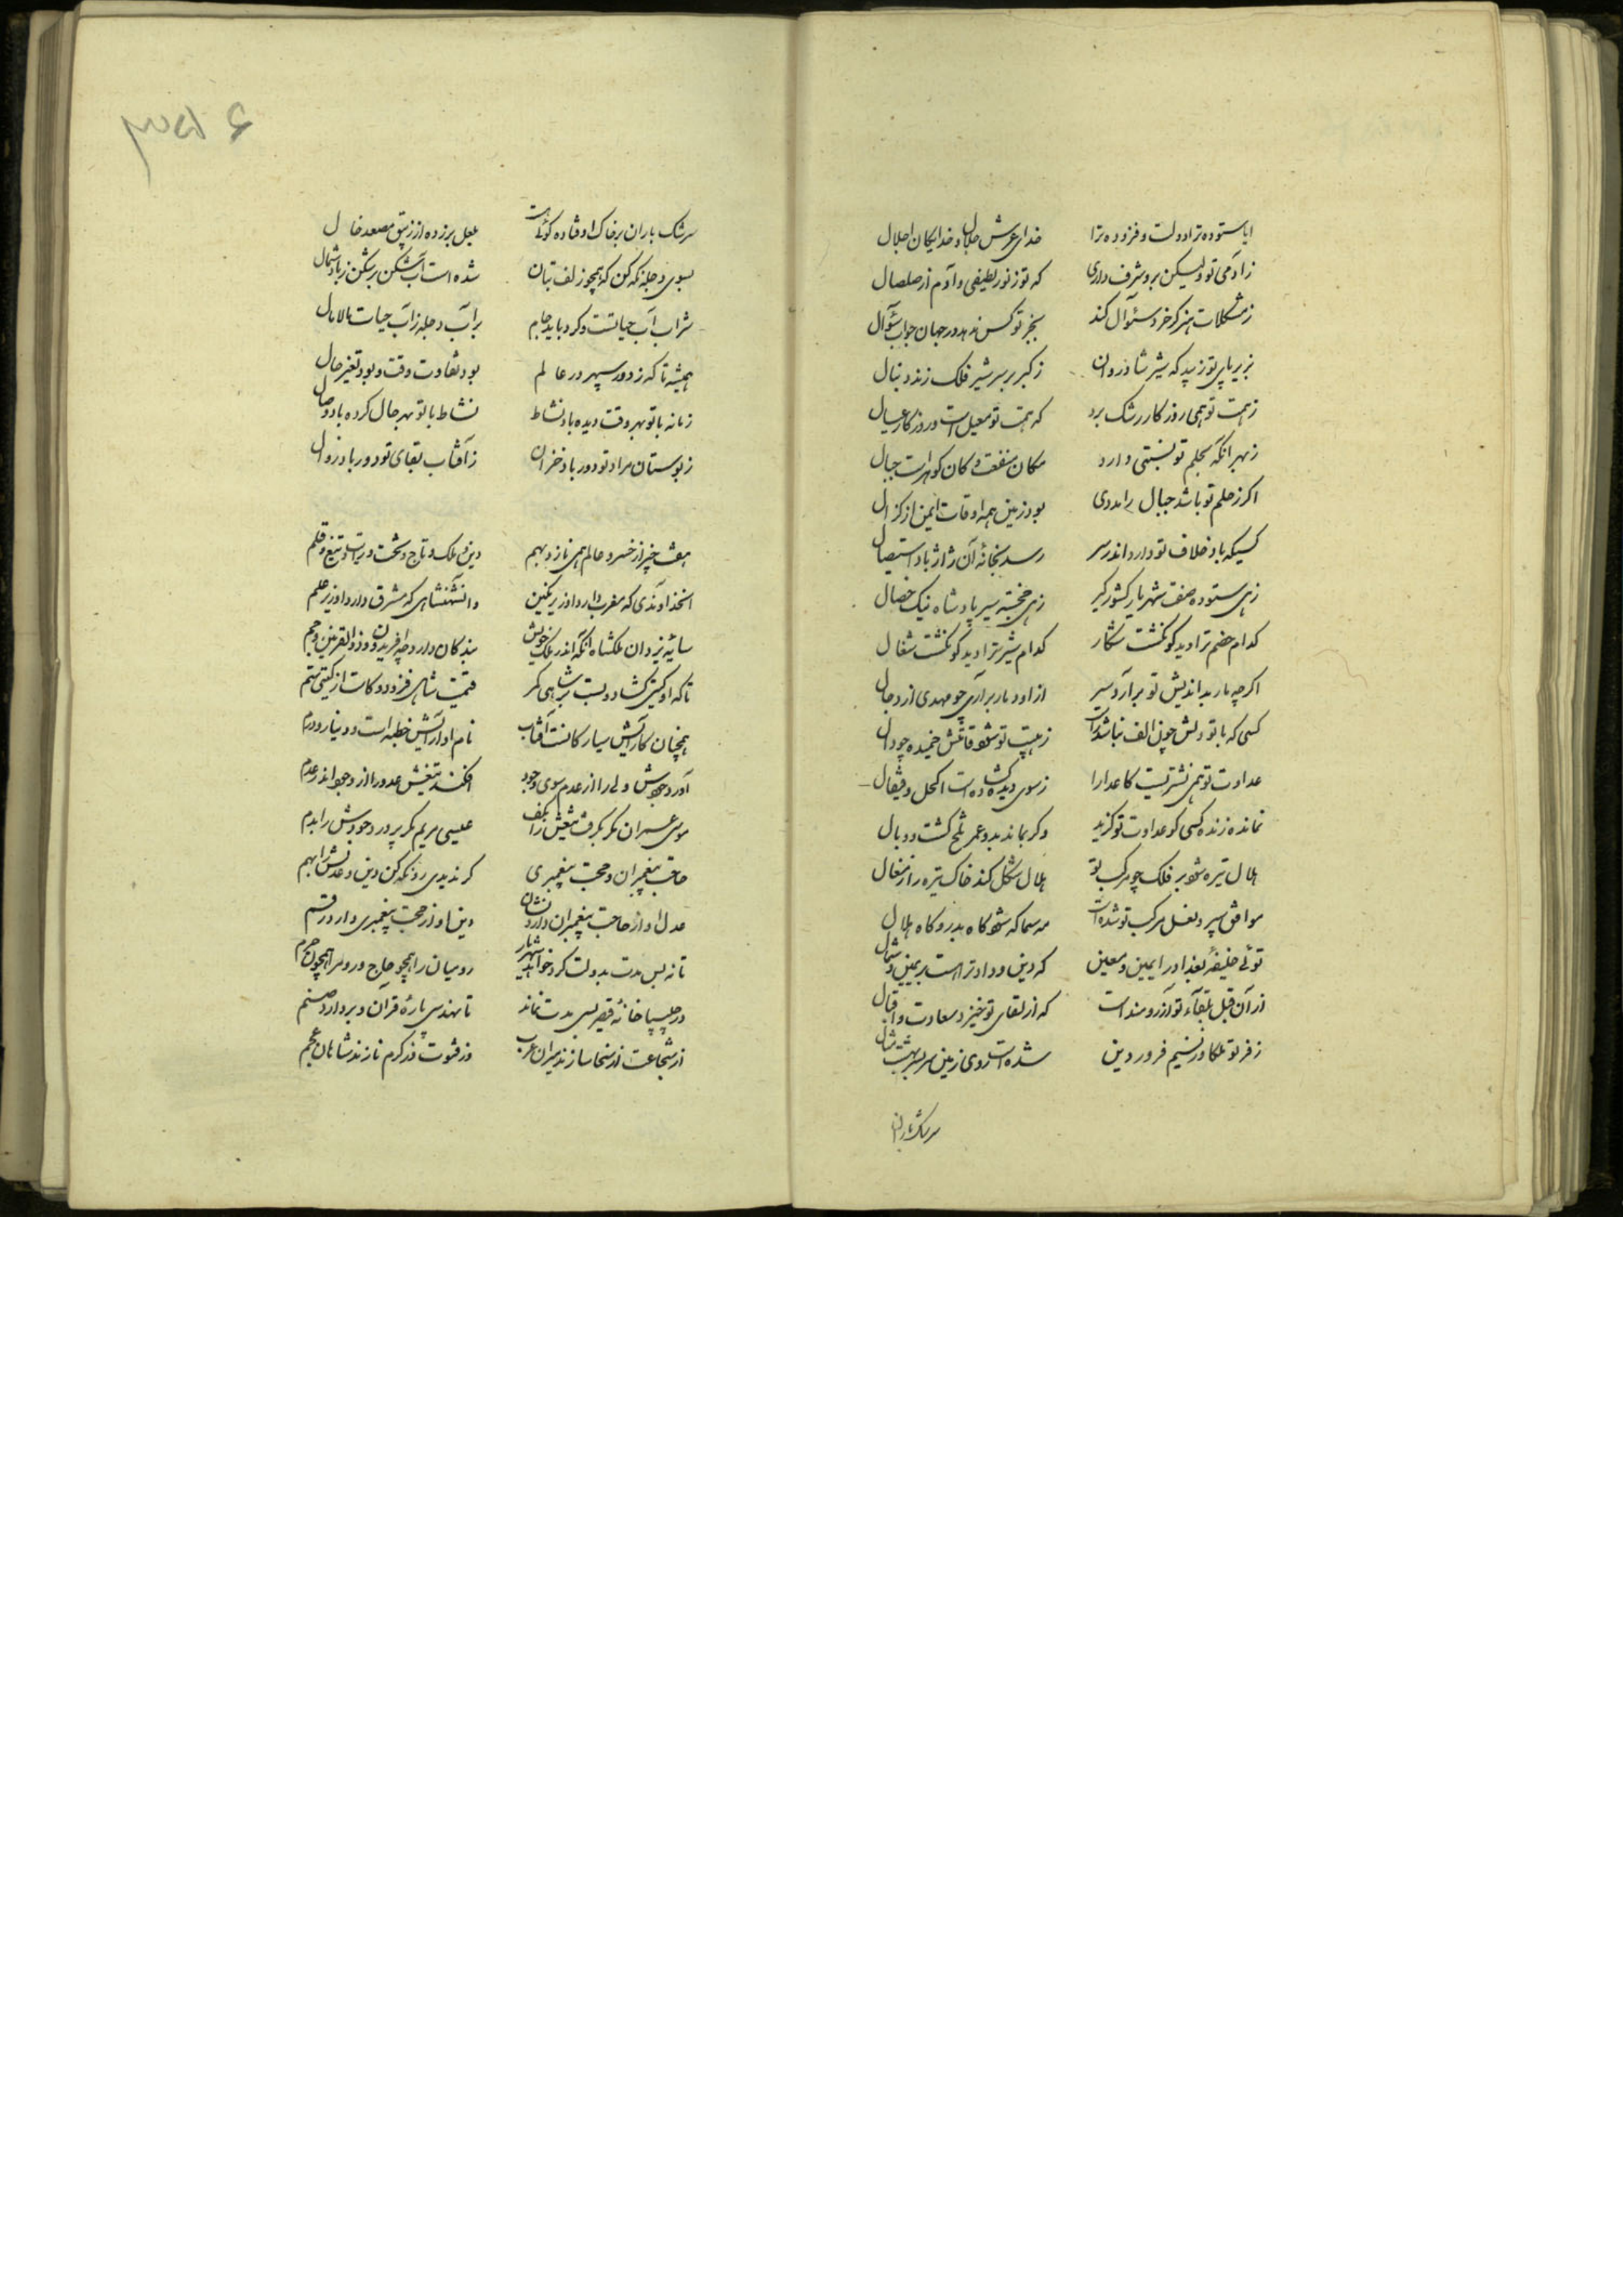 ایا ستوده ترا دولت و فزوده ترا خدای عرش جلال و خدایگان اجلال
ز آدمی تو ولیکن برو شرف داری که تو ز نور لطیفی و آدم از صلصال
ز مشکلات هنر گر خرد سئوال کند بجز تو کس ندهد در جهان جواب سئوال
بزیر پای تو زیبد که شیر شادروان ز کبر بر سر شیر فلک زند دنبال
ز همت تو همی روزگار رشک برد که همت تو معیل است و روزگار عیال
ز بهر آنکه بحلم تو نسبتی دارد مکان منفعت و کان گوهر است جبال
اگر ز حلم تو باشد جبال را مددی بود زمین همه اوقات ایمن از زلزال
کسیکه باد خلاف تو دارد اندر سر رسد بخانهٔ آن ژاژ باد استیصال
زهی ستوده صفت شهریار کشورگیر زهی خجسته سیر پادشاه نیک خصال
کدام خصم ترا دید کو نگشت شکار کدام شیر ترا دید کو نگشت شغال
اگرچه مار بداندیش تو برآرد سر از او دمار برآری چو مهدی از دجال
کسی که با تو دلش چون الف نباشد راست ز هیبت تو شود قامتش خمیده چو دال
عداوت تو همی نشتریست کاعدا را ز سوی دیده گشاده است اکحل و قیفال
نماند زنده کسی کو عداوت تو گزید وگر بماند بدو عمر تلخ گشت و وبال
هلال تیره شود بر فلک چو مرکب تو هلال شکل کند خاک تیره را ز نعال
موافق سپر و نعل مرکب تو شده است مه سما که شود گاه بدر و گاه هلال
توئی خلیفهٔ بغداد را یمین و معین که دین و داد ترا هست بر یمین و شمال
از آن قبل بلقاء تو آرزومند است که از لقای تو خیزد سعادت و اقبال
ز فر تو ملکا وز نسیم فروردین شده است روی زمین سر بسر بهشت مثال
سرشک باران
۳۵۱ ۶
سرشک باران بر خاک اوفتاده گوئی هست بلعل بر زده از زیبق مصعد خال
بسوی دجله نگه کن که همچو زلف بتان شده است آب شکن بر شکن ز باد شمال
شراب آب حیاتست و کرد باید جام بر آب دجله ز آب حیات مالامال
همیشه تا که ز دور سپهر در عالم بود تفاوت وقت و بود تغیر حال
زمانه با تو بهر وقت دیده باد نشاط نشاط با تو بهر حال کرده باد وصال
ز بوستان مراد تو دور باد خزان ز آفتاب بقای تو دور باد زوال
هفت چیز از خسرو عالم همی نازد بهم دین و ملک و تاج و تخت و رایت و تیغ و قلم
آنخداوندی که مغرب دارد او زیر نگین وانشهنشاهی که مشرق دارد او زیر علم
سایهٔ یزدان ملکشاه آنکه اندر ملک خویش بندگان دارد چه افریدون و ذوالقرنین و جم
تا که او گیتی گشاد و بست بر شاهی کمر قیمت شاهی فزود و کاست از گیتی ستم
همچنان کارایش سیارگانست آفتاب نام او آرایش خطبه است و دینار و درم
آورد جودش ولی را از عدم سوی وجود افکند تیغش عدو را از وجود اندر عدم
موسی عمران مگر بگرفت تیغش را بکف عیسی مریم مگر پرورد جودش را بدم
حاجت پیغمبران و حجت پیغمبری گر ندیدی رو نگه کن دین و عدلش را بهم
عدل او از حاجت پیغمبران دارد نشان دین او از حجت پیغمبری دارد رقم
تا نه بس مدت بدولت کرد خواهد شهریار رومیان را همچو حاج و روم را همچون حرم
در چلیپا خانهٔ قیصر بسی مدت نماند تا نهد سی پارهٔ قرآن و بردارد صنم
از شجاعت از سخا سازند میران عرب وز فتوت وز کرم نازند شاهان عجم